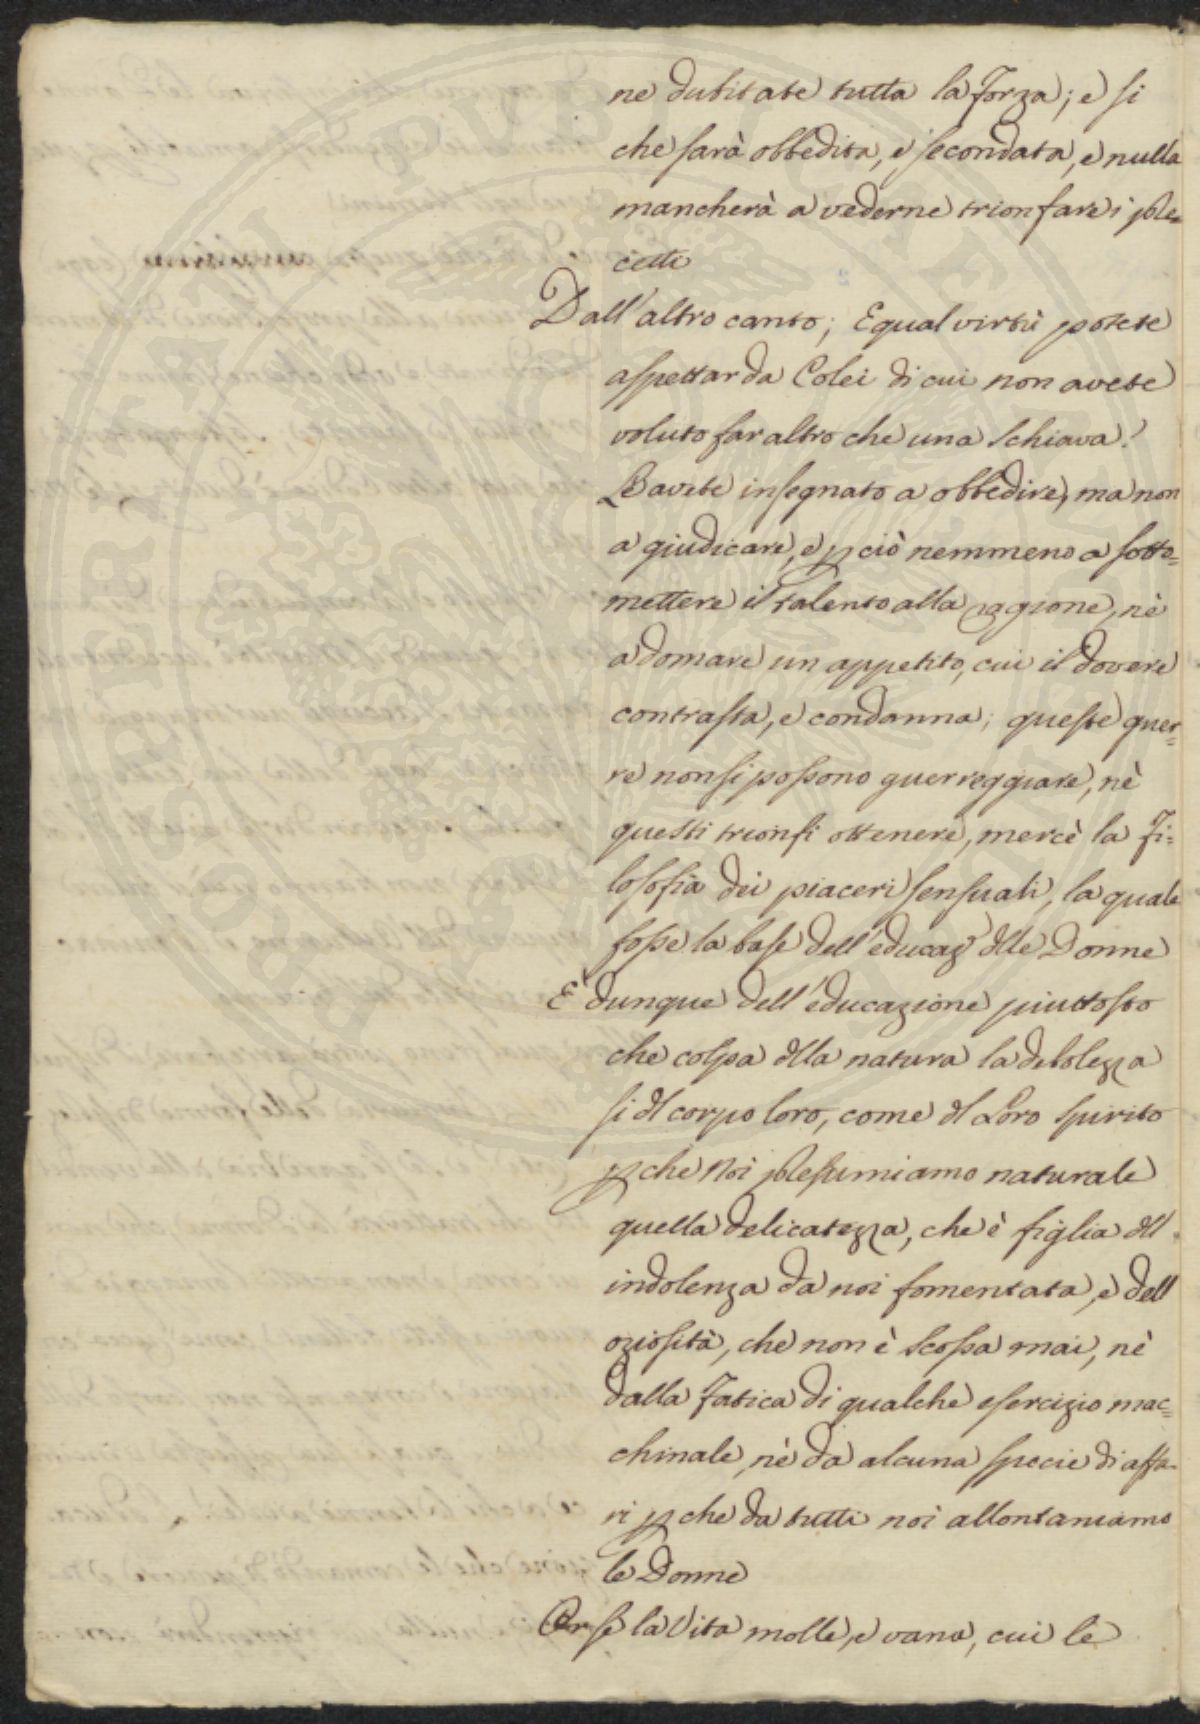 ne dubitate tutta la Forza; e si
che sarà obbedita, e secondata, e nulla
mancherà a vederne trionfare i pre=
cetti
Dall'altro canto; E qual virtù potete
aspettar da Colei di cui non avete
voluto far altro che una schiava?
L'avete insegnato a obbedire, ma non
a giudicare, e p ciò nemmeno a sotto=
mettere il talento alla ragione, nè
a domare un appetito, cui il dovere
contrasta, e condanna; queste guer=
re non si possono guerreggiare, nè
questi trionfi ottenere, mercè la Fi=
losofia dei piaceri sensuali, la quale
fosse la base dell'educaz. dlle Donne
E' dunque dell'educazione piuttosto
che colpa dlla natura la debolezza
si dl corpo loro, come dl Loro spirito
p che Noi presumiamo naturale
quella delicatezza, che è figlia dll'
indolenza da noi fomentata, e dell
oziosità, che non è scossa mai, nè
dalla Fatica di qualche esercizio mac=
chinale, nè da alcuna specie di affa=
ri p che da tutti noi allontaniamo
le Donne
Or se la Vita molle, e vana, cui le